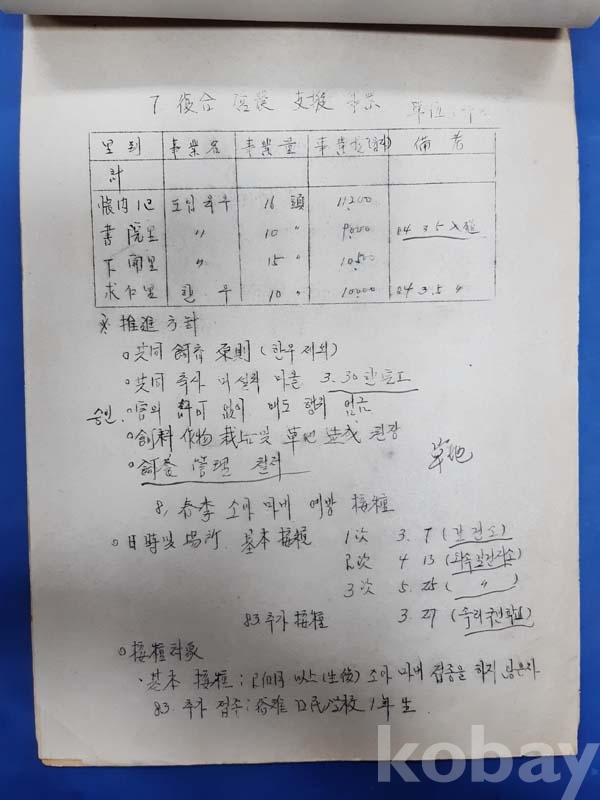 7 復合 營農 支援 事業 單位:
里別 事業名 事業量 事業費 備考
計
懐内1里 도입육우 16 頭 11,200
書院里 〃 10 〃 9,000 84 3.5 入植
下開里 〃 15 〃 10,500
求仁里 한우 10 〃 10,000 84 3.5 〃
※ 推進方針
○共同 飼育 原則 (한우 제외)
○共同 축사 미설치 마을 3.30 한 완료
승인. ○ 許可 없이 매도 행위 엄금
○飼料作物 栽培및 草地 造成 권장
○飼養 管理 철저 草地
8, 春季 소아마비 예방 接種
○日時및 場所. 基本 接種 1次 3. 9 (보건소)
2次 4 13 (외속보건지소)
3次 5. 25 ( 〃 )
83 추가 接種 3. 27 (속리국민학교)
○接種対象
·基本 接種; 2個月 以上 (生後) 소아마비 접종을 하지 않은자
83. 추가 접종; 俗離 国民学校 1年生.
kobay